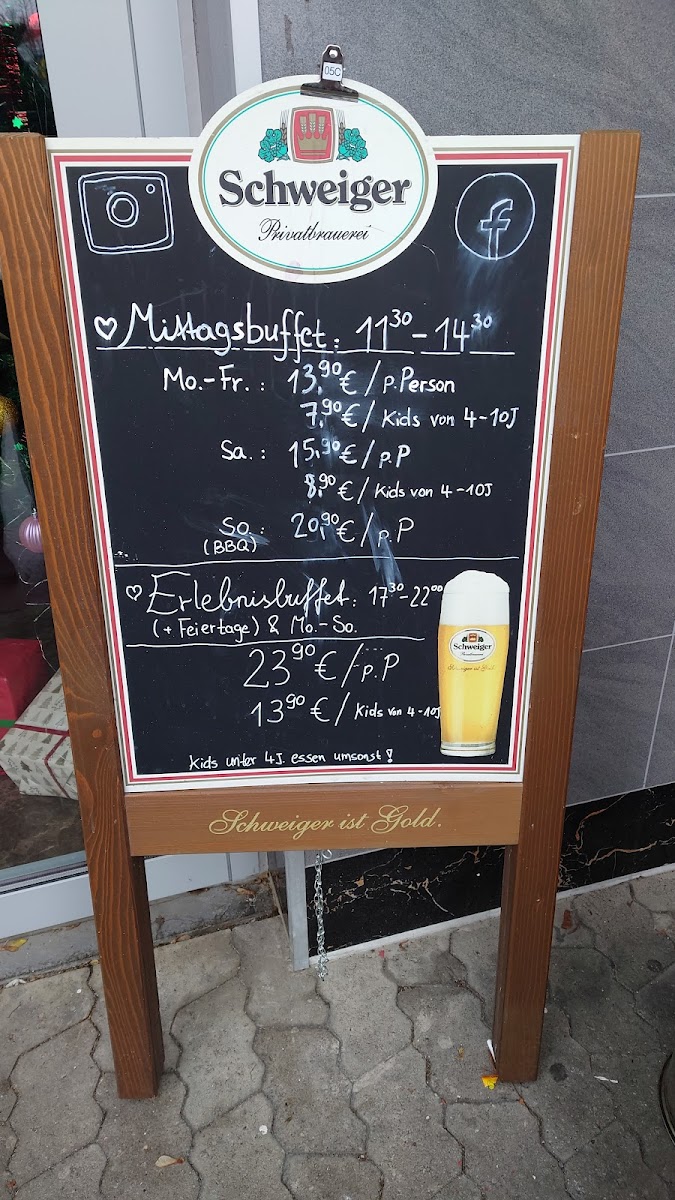 05C
Schweiger
Privatbrauerei
♡ Mittagsbuffet: 11³⁰ - 14³⁰
Mo.-Fr.: 13,⁹⁰ € / p.Person
7,⁹⁰ € / Kids von 4-10J
Sa.: 15,⁹⁰ € / p.P
8,⁹⁰ € / Kids von 4-10J
So.: 20,⁹⁰ € / p.P
(BBQ)
♡ Erlebnisbuffet: 17³⁰-22⁰⁰
(+ Feiertage) & Mo.-So.
23⁹⁰ € / p.P
13⁹⁰ € / Kids von 4-10J
Kids unter 4J. essen umsonst!
Schweiger
Privatbrauerei
Schweiger ist Gold.
Schweiger ist Gold.